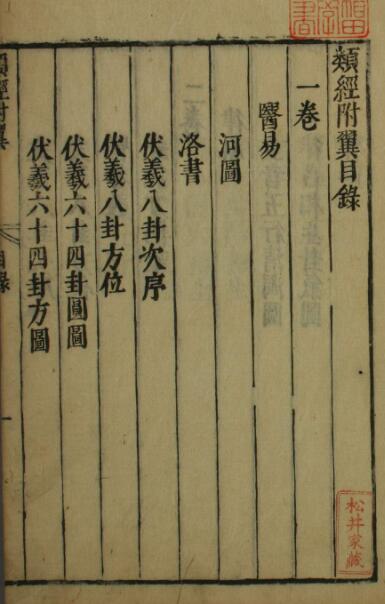 類經附翼目錄
一卷
醫易
河圖
洛書
伏羲八卦次序
伏羲八卦方位
伏羲六十四卦圓圖
伏羲六十四卦方圖
類經附翼
目錄
一
松井家藏